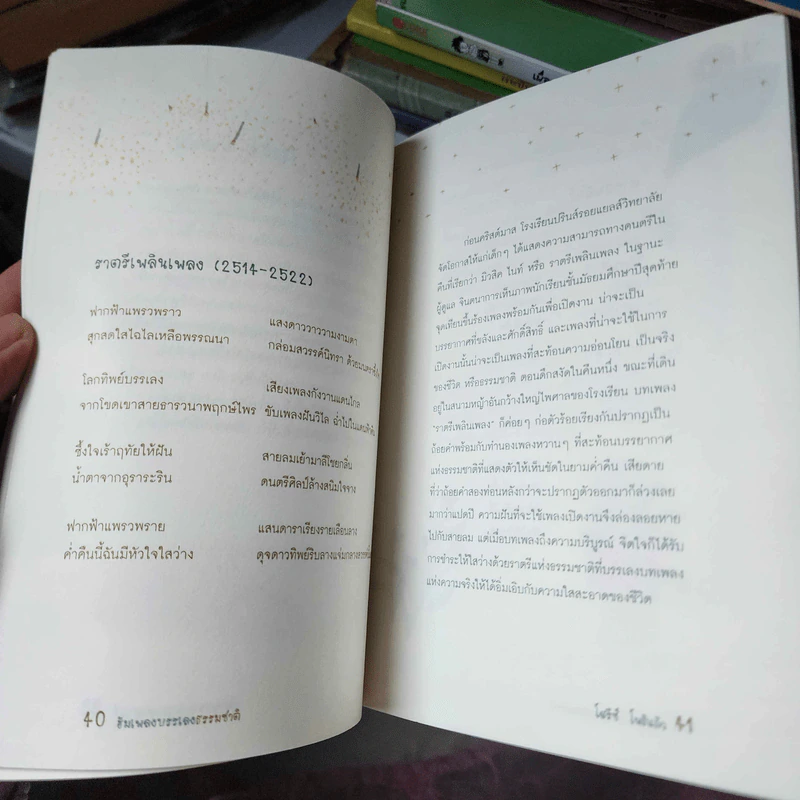 ราตรีเพลินเพลง (2514-2522)
ฟากฟ้าแพรวพราว แสงดาววาววามงามตา
สุกสดใสไฉไลเหลือพรรณนา กล่อมสวรรค์นิทรา
โลกทิพย์บรรเลง เสียงเพลงกังวานแดนไกล
จากโขดเขาสายธารวนาพฤกษ์ไพร ขับเพลงฝันวิไล
ซึ้งใจเร้าฤทัยให้ฝัน สายลมเย้ามาลีโชยกลิ่น
น้ำตาจากอุราระริน ดนตรีศิลป์ล้างสนิมใจจาง
ฟากฟ้าแพรวพราย แสนดาราเรียงรายเลือนลาง
ค่ำคืนนี้ฉันมีหัวใจใสว่าง ดุจดาวทิพย์ริบลางแจ่มกลาง
40 ฮัมเพลงบรรเลงธรรมชาติ
ก่อนคริสต์มาส โรงเรียนปรินส์รอยแยลส์วิทยาลัย
จัดโอกาสให้แก่เด็กๆ ได้แสดงความสามารถทางดนตรีใน
คืนที่เรียกว่า มิวสิค ไนท์ หรือ ราตรีเพลินเพลง ในฐานะ
ผู้ดูแล จินตนาการเห็นภาพนักเรียนชั้นมัธยมศึกษาปีสุดท้าย
จุดเทียนขึ้นร้องเพลงพร้อมกันเพื่อเปิดงาน น่าจะเป็น
บรรยากาศที่ขลังและศักดิ์สิทธิ์ และเพลงที่น่าจะใช้ในการ
เปิดงานนั้นน่าจะเป็นเพลงที่สะท้อนความอ่อนโยน เป็นจริง
ของชีวิต หรือธรรมชาติ ตอนดึกสงัดในคืนหนึ่ง ขณะที่เดิน
อยู่ในสนามหญ้าอันกว้างใหญ่ไพศาลของโรงเรียน บทเพลง
"ราตรีเพลินเพลง" ก็ค่อยๆ ก่อตัวร้อยเรียงกันปรากฏเป็น
ถ้อยคำพร้อมกับทำนองเพลงหวานๆ ที่สะท้อนบรรยากาศ
แห่งธรรมชาติที่แสดงตัวให้เห็นชัดในยามค่ำคืน เสียดาย
ที่ว่าถ้อยคำสองท่อนหลังกว่าจะปรากฏตัวออกมาก็ล่วงเลย
มากว่าแปดปี ความฝันที่จะใช้เพลงเปิดงานจึงล่องลอยหาย
ไปกับสายลม แต่เมื่อบทเพลงถึงความบริบูรณ์ จิตใจก็ได้รับ
การชำระให้ใสสว่างด้วยราตรีแห่งธรรมชาติที่บรรเลงบทเพลง
แห่งความจริงให้ได้อิ่มเอิบกับความใสสะอาดของชีวิต
โสรีช์ โพธิแก้ว 41